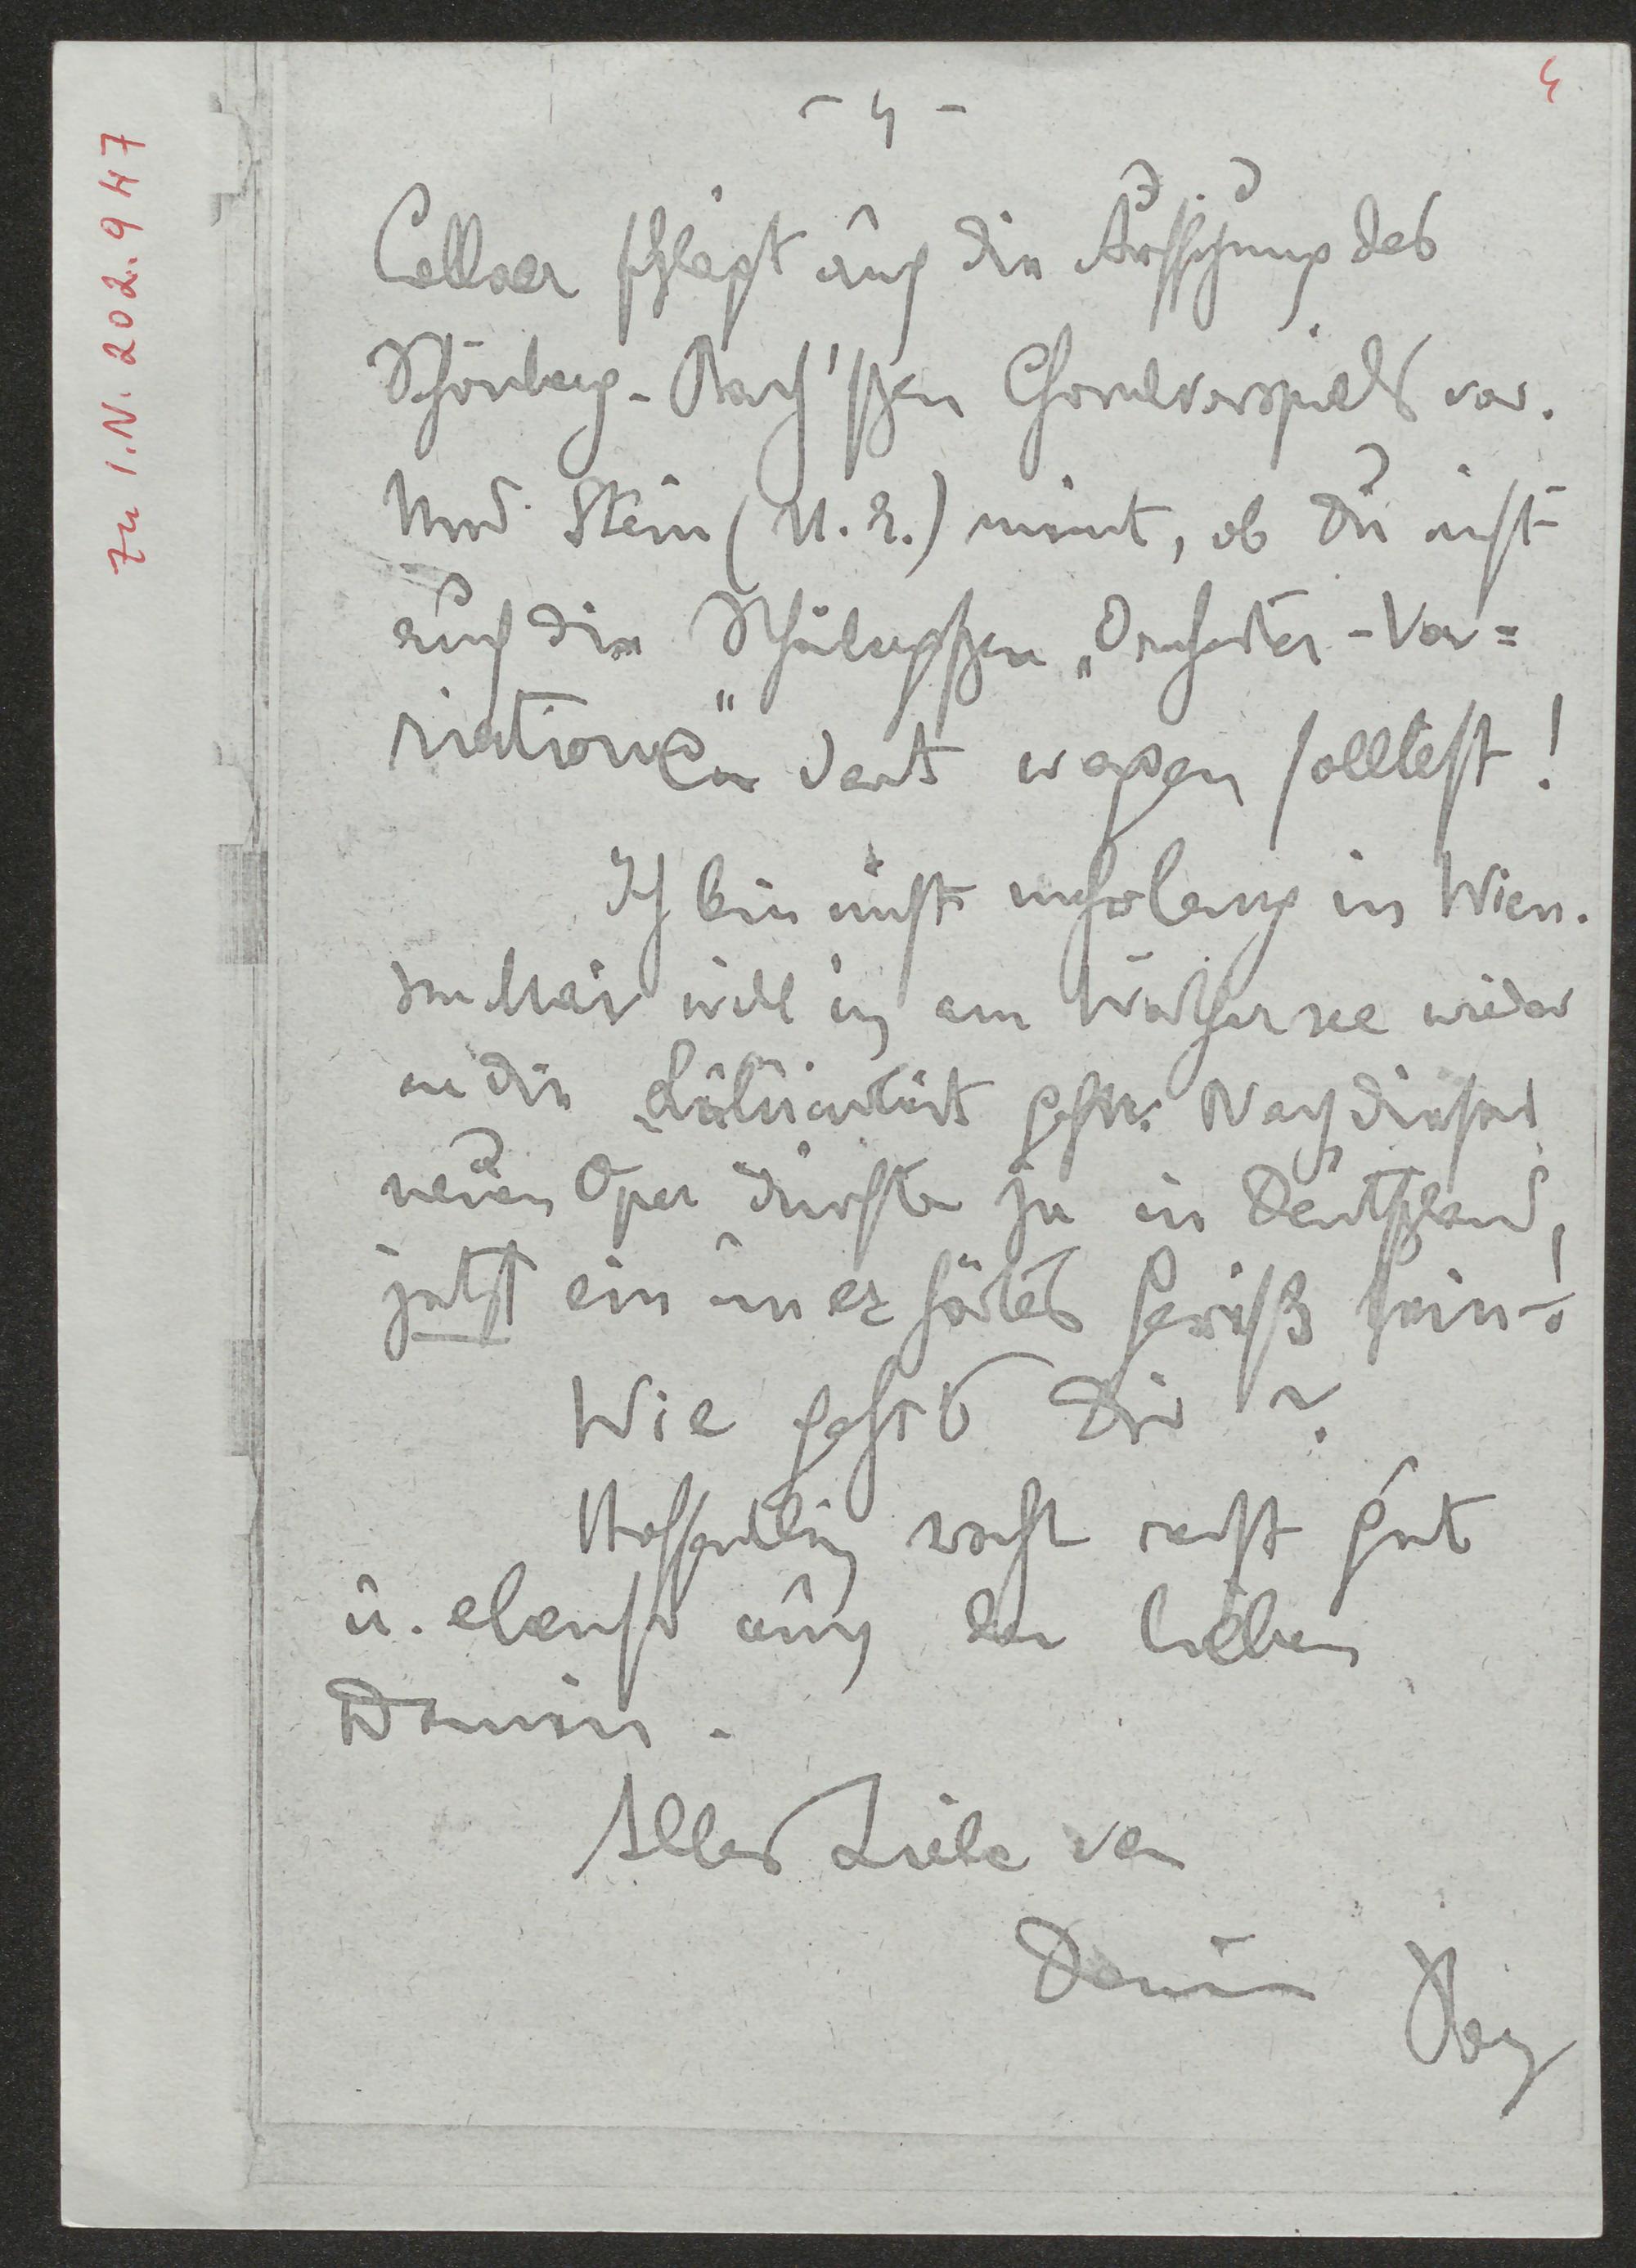 4
- 4 -
zu I.N. 202.947
Collaer schlägt auch die Aufführung des
Schönberg-Bach'schen Choralvorspiels vor.
Und Stein (U.E.) meint, ob Du nicht
auch die Schönbergschen „Orchester-Va=
riationen" dort wagen solltest!
Ich bin nicht mehr lang in Wien.
Im Mai will ich am Wörthersee wieder
an die Luluarbeit gehn. Nach dieser
neuen Oper dürfte ja in Deutschland,
jetzt ein unerhörtes Geriß sein!
Wie geht's Dir?
Hoffentlich recht gut
u. ebenso auch den lieben
Deinen.
Alles Liebe von
Deinem Berg